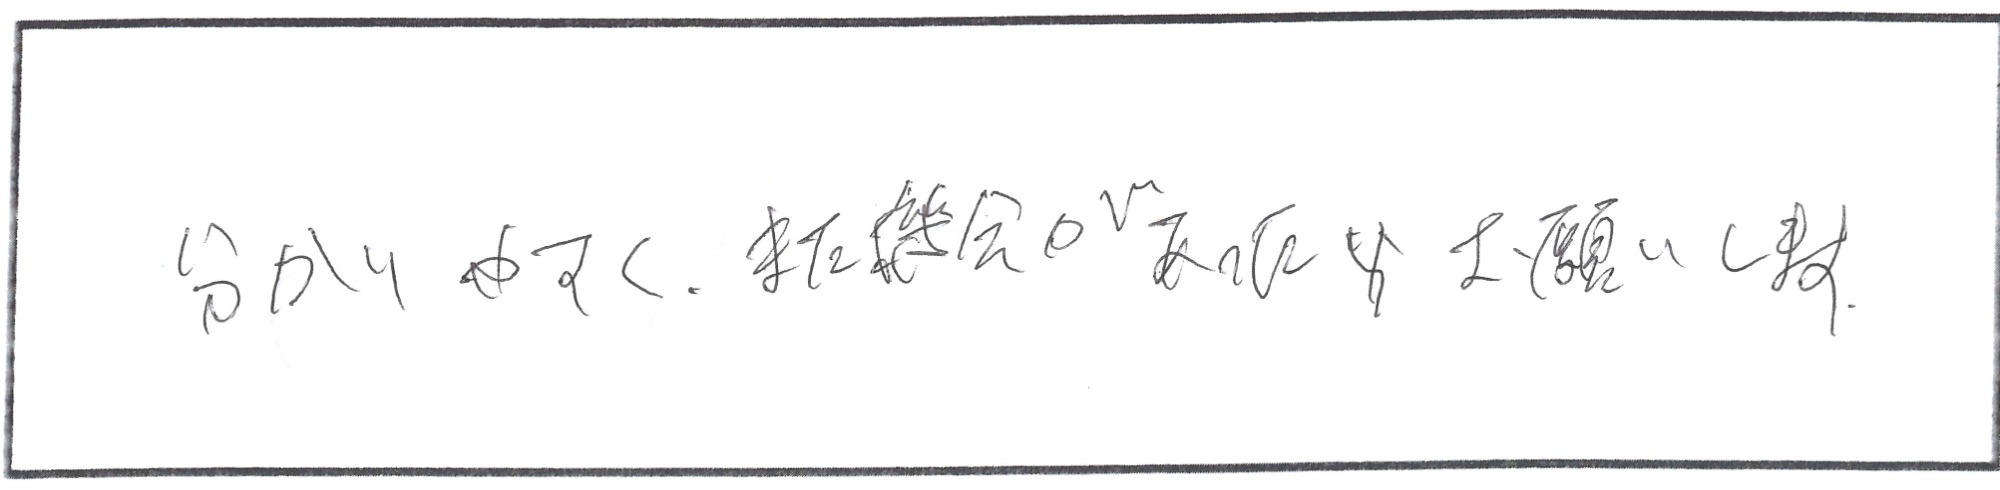 分かりやすく、また機会があったらお願いします。